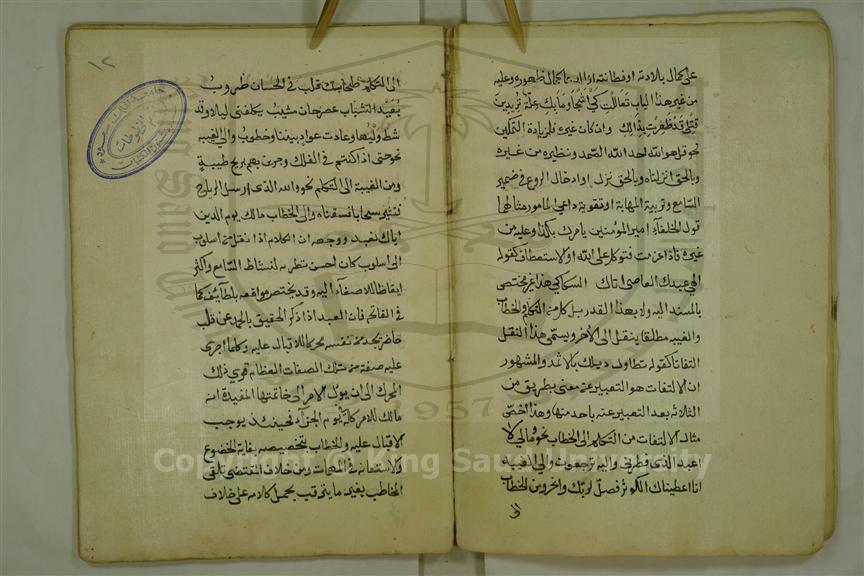 على كمال بلادته او فطانته او ادعاء كمال ظهوره وعليه
من غير هذا الباب تعاللت كي اشجا وما بك علة تريدين
قتلى قد ظفرت بذلك وان كان غيره فلزيادة التمكين
نحو قل هو الله احد الله الصمد ونظيره من غيره
وبالحق انزلناه وبالحق نزل او ادخال الروع في ضمير
السامع وتربية المهابة او تقوية داعي المامور مثالهما
قول الخلفاء امير المؤمنين يامرك بكذا وعليه من
غيره فاذا عزمت فتوكل على الله او الاستعطاف كقوله
الهي عبدك العاصي اتاك السكاكي هذا غير مختص
بالمسند اليه ولا بهذا القدر بل كل من التكلم والخطاب
والغيبه مطلقا ينقل الى الاخر ويسمى هذا النقل
التفاتا كقوله تطاول ليلك بالاثمد والمشهور
ان الالتفات هو التعبير عن معنى بطريق من
الثلاثه بعد التعبير عنه باحد منها وهذا اخص
مثال الالتفات من التكلم الى الخطاب نحو ومالي لا
اعبد الذي فطرني واليه ترجعون والى الغيبة
انا اعطيناك الكوثر فصل لربك وانحر ومن الخطاب
الى
١٢
الى التكلم طحا بك قلب في الحسان طروب
بعيد الشباب عصر حان مشيب يكلفني ليلا وقد
شط وليها وعادت عواد بيننا وخطوب والى الغيبه
نحو حتى اذا كنتم في الفلك وجرين بهم بريح طيبة
ومن الغيبة الى التكلم نحو والله الذي ارسل الرياح
فتثير سحابا فسقناه والى الخطاب مالك يوم الدين
اياك نعبد ووجهه ان الكلام اذا نقل من اسلوب
الى اسلوب كان احسن تطرية لنشاط السامع واكثر
ايقاظا للاصغاء اليه وقد يختص مواقعه بلطائف كما
في الفاتحه فان العبد اذا ذكر الحقيق بالحمد عن قلب
حاضر يجد من نفسه محركا للاقبال عليه وكلما اجرى
عليه صفة من تلك الصفات العظام قوي ذلك
المحرك الى ان يؤل الامر الى خاتمتها المفيدة انه
مالك للامر كله يوم الجزآء فحينئذ يوجب
الاقبال عليه والخطاب بتخصيصه بغاية الخضوع
والاستعانه في المهمات ومن خلاف المقتضى تلقي
المخاطب بغير ما يترقب بحمل كلامه على خلاف
Copyright © King Saud University
1957